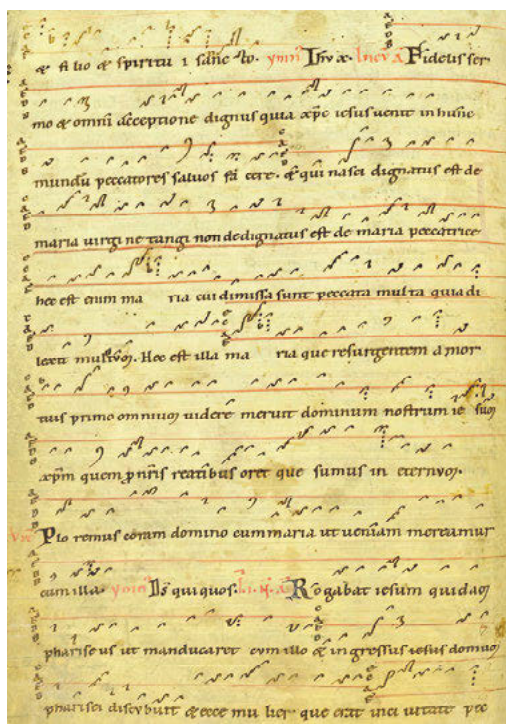 & filio & spiritu i sancto. ymn Ihu x. In ev a Fidelis ser
mo & omni acceptione dignus quia xpc iesus venit in hunc
mundu peccatores salvos fa cere. & qui nasci dignatus est de
maria virgi ne tangi non dedignatus est de maria peccatrice
hec est enim ma ria cui dimissa sunt peccata multa quia di
lexit multum. Hec est illa ma ria que resurgentem a mor
tuis primo omnium videre meruit dominum nostrum ie sum
xpm quem nris reatibus oret que sumus in eternum.
Plo remus coram domino cum maria ut veniam mereamur
cum illa. ymn Ds qui quos. Rogabat iesum quidam
phariseus ut manducaret cum illo & ingressus iesus domum
pharisei discubuit & ecce mu lier que erat in ci vitate pec